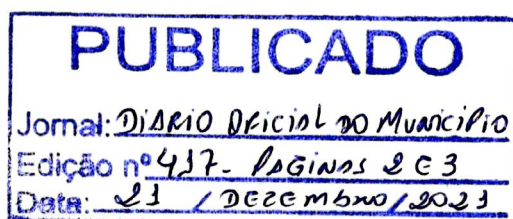 PUBLICADO
Jornal: DiÁRIO OFICIAL DO MUNICÍPIO
Edição nº 417 - PÁGINAS 2 E 3
Data: 21 / DEZEMBRO / 2021